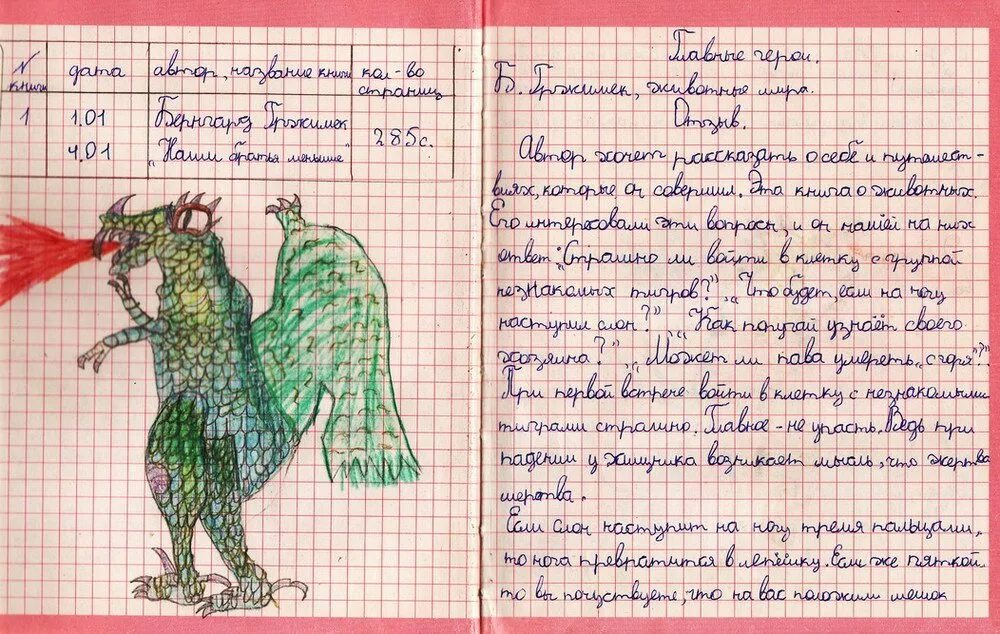 N книги
дата
автор, название книги
кол-во страниц
1
1.01
4.01
Бернгард Гржимек
„Наши братья меньшие"
285с.
Главные герои.
Б. Гржимек, животные мира.
Отзыв.
Автор хочет рассказать о себе и путешест-
виях, которые он совершил. Эта книга о животных.
Его интересовали эти вопросы, и он нашёл на них
ответ: „Страшно ли войти в клетку с группой
незнакомых тигров?" „Что будет, если на ногу
наступил слон?" „Как попугай узнаёт своего
хозяина?" „Может ли пава умереть „с горя"?"
При первой встрече войти в клетку с незнакомыми
тиграми страшно. Главное - не упасть. Ведь при
падении у хищника возникает мысль, что жертва
мертва.
Если слон наступит на ногу тремя пальцами,
то нога превратится в лепёшку. Если же пяткой,
то вы почуствуете, что на вас положили мешок